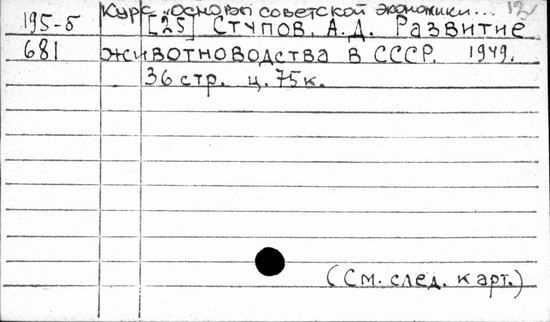 Курс "основы советской экономики... 12
195-б [25] Ступов. А.Д. Развитие
681 животноводства в СССР. 1949.
36 стр. ц. 75к.
(См. след. карт.)